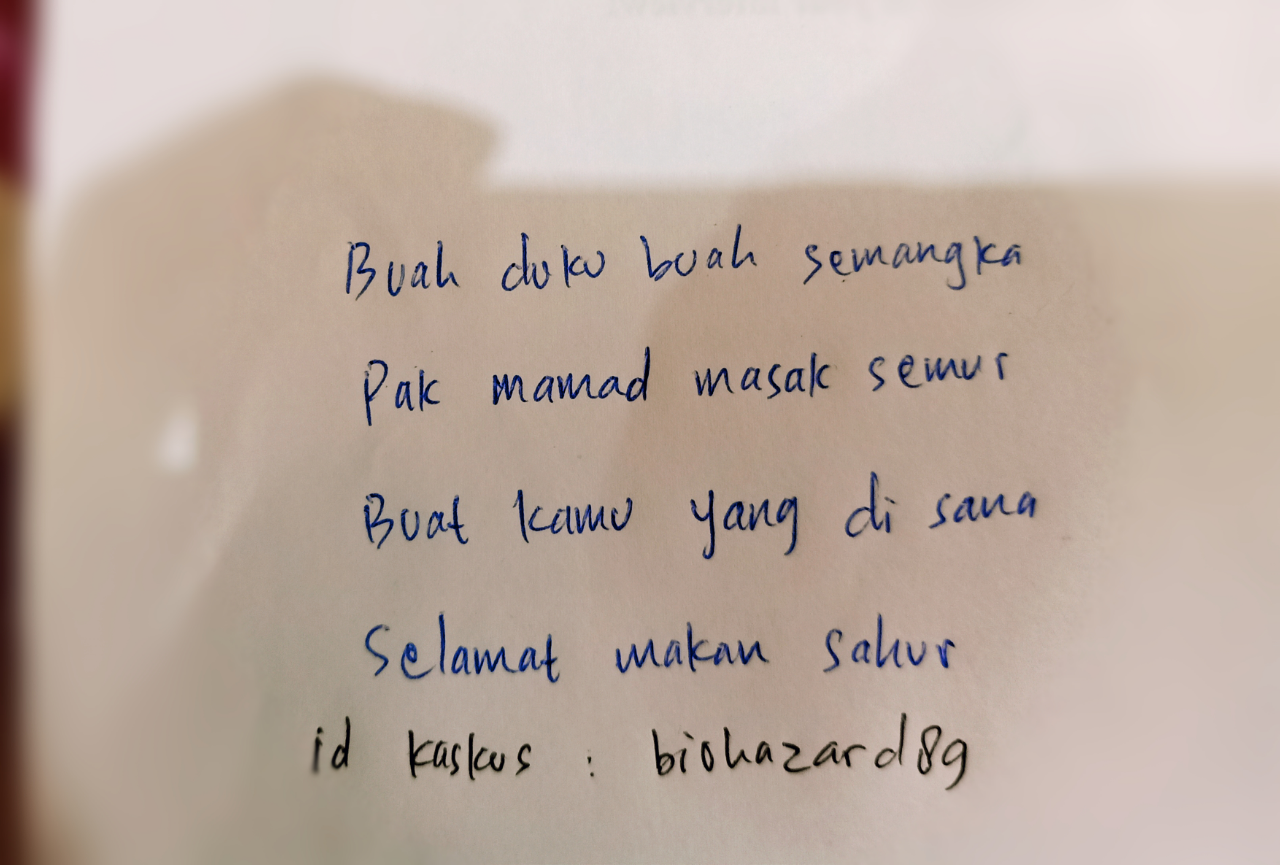 Buah duku buah semangka
Pak mamad masak semur
Buat kamu yang di sana
Selamat makan sahur
id kaskus : biohazard89